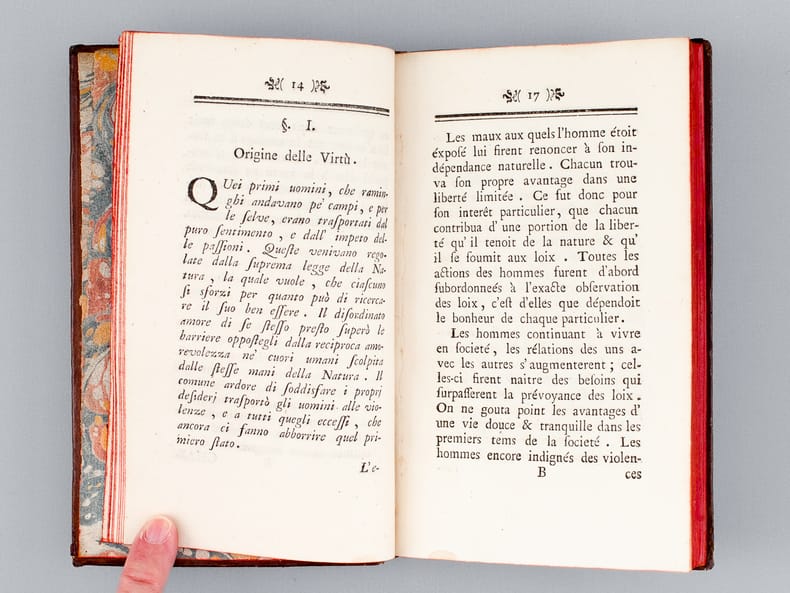 ( 14 )
§. I.
Origine delle Virtù.
QUei primi uomini, che ramin-
ghi andavano pe' campi, e per
le ſelve, erano traſportati dal
puro ſentimento, e dall' impeto del-
le paſſioni. Queſte venivano rego-
late dalla ſuprema legge della Na-
tura, la quale vuole, che ciaſcuno
ſi sforzi per quanto può di ricerca-
re il ſuo ben eſſere. Il diſordinato
amore di ſe ſteſſo preſto ſuperò le
barriere oppoſtegli dalla reciproca amo-
revolezza ne' cuori umani ſcolpita
dalle ſteſſe mani della Natura. Il
comune ardore di ſoddisfare i propri
deſiderj traſportò gli uomini alle vio-
lenze, e a tutti quegli ecceſſi, che
ancora ci fanno abborrire quel pri-
miero ſtato.
L'e-
( 17 )
Les maux aux quels l'homme étoit
éxpoſé lui firent renoncer à ſon in-
dépendance naturelle. Chacun trou-
va ſon propre avantage dans une
liberté limitée. Ce fut donc pour
ſon intérêt particulier, que chacun
contribua d'une portion de la liber-
té qu'il tenoit de la nature & qu'
il ſe ſoumit aux loix. Toutes les
actions des hommes furent d'abord
ſubordonnées à l'exacte obſervation
des loix, c'eſt d'elles que dépendoit
le bonheur de chaque particulier.
Les hommes continuant à vivre
en societé, les rélations des uns a-
vec les autres s'augmenterent; cel-
les-ci firent naitre des beſoins qui
ſurpaſſerent la prévoyance des loix.
On ne gouta point les avantages d'
une vie douce & tranquille dans les
premiers tems de la ſocieté. Les
hommes encore indignés des violen-
B ces